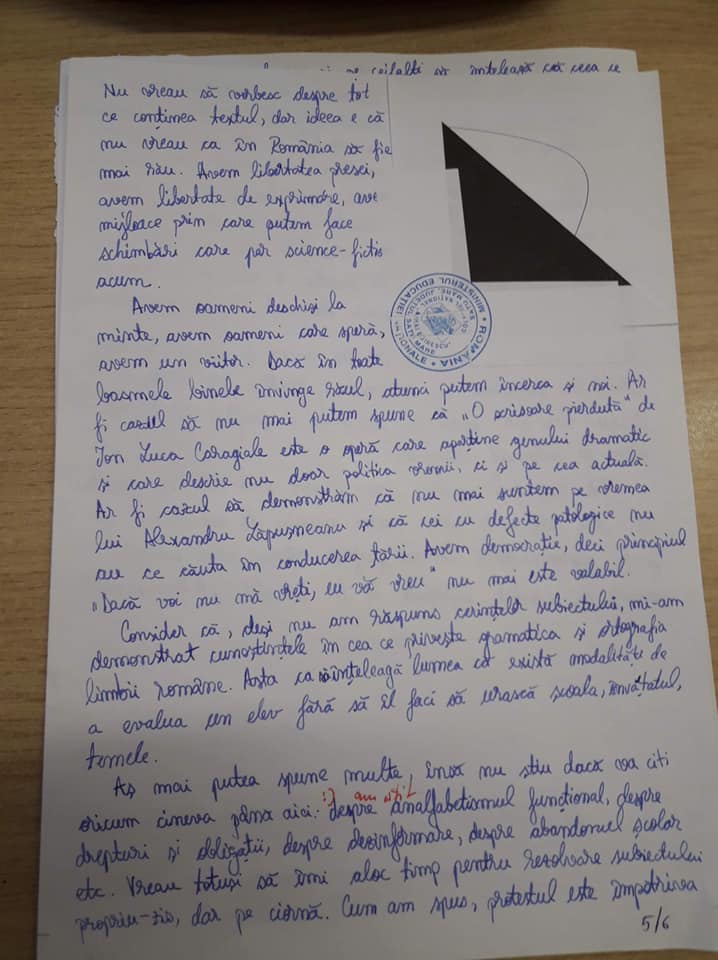 ceilalți să înteleasă că ceea ce
Nu vreau să vorbesc despre tot
ce conținea textul, dar ideea e că
nu vreau ca în România să fie
mai rău. Avem libertatea presei,
avem libertate de exprimare, ave
mijloace prin care putem face
schimbări care par science-fictio
acum.
Avem oameni deschiși la
minte, avem oameni care speră,
avem un viitor. Dacă în toate
basmele binele învinge răul, atunci putem încerca și noi. Ar
fi cazul să nu mai putem spune că „O scrisoare pierdută" de
Ion Luca Caragiale este o operă care aparține genului dramatic
și care descrie nu doar politica vremii, ci și pe cea actuală.
Ar fi cazul să demonstrăm că nu mai suntem pe vremea
lui Alexandru Lăpușneanu și că cei cu defecte patologice nu
au ce căuta în conducerea țării. Avem democrație, deci principiul
„Dacă voi nu mă vreți, eu vă vreu" nu mai este valabil.
Consider că, deși nu am răspuns cerințelor subiectului, mi-am
demonstrat cunoștințele în cea ce privește gramatica și ortografia
limbii române. Asta ca să înțeleagă lumea că există modalități de
a evalua un elev fără să îl faci să urască școala, învățatul,
temele.
Aș mai putea spune multe, însă nu știu dacă va citi
:) am citit
oricum cineva până aici: despre analfabetismul funcțional, despre
drepturi și obligații, despre dezinformare, despre abandonul școlar
etc. Vreau totuși să îmi aloc timp pentru rezolvare subiectului
propriu-zis, dar pe ciornă. Cum am spus, protestul este împotriva
5/6
ROMÂNIA
MINISTERUL EDUCAȚIEI NAȚIONALE
SATU MARE, JUDEȚUL SATU MARE